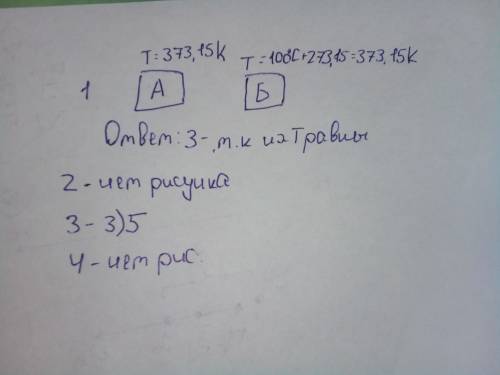 T = 373,15K T = 100°C+273,15=373,15K
1 А Б
Ответ: 3-, т.к их Травны
2 - нет рисунка
3 - 3)5
4 - нет рис.